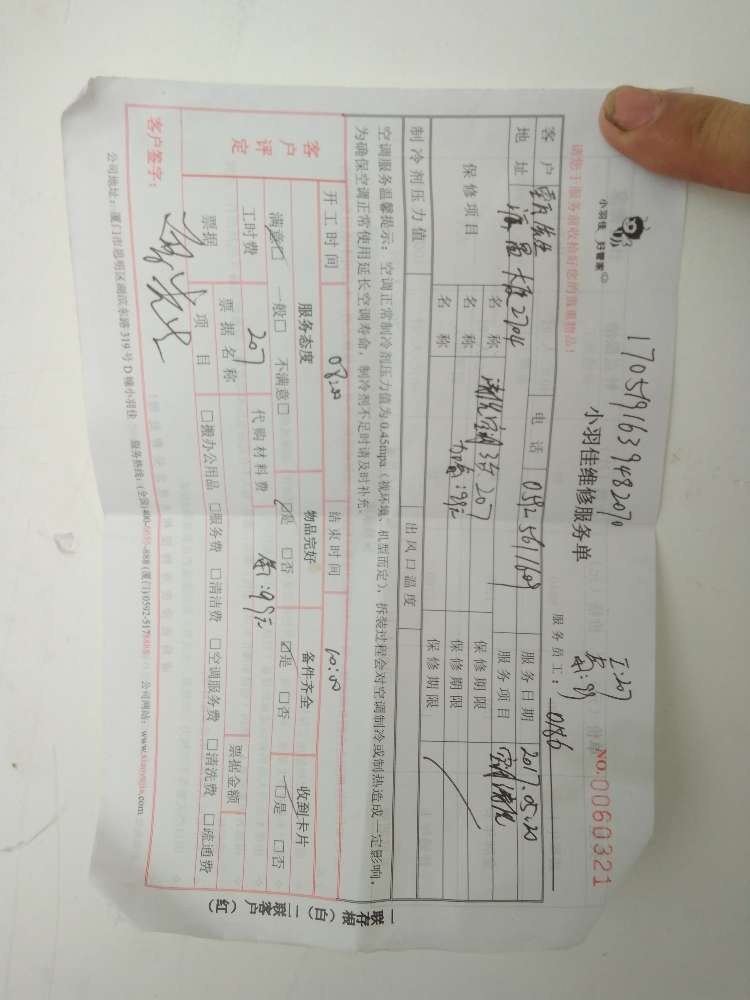 1705191639482070
小羽佳 好管家
小羽佳维修服务单
NO.0060321
服务员工： 0186
客户
电话 0592 5611609
服务日期 2017.05.20
地址 大厦2704
服务项目 空调清洗
保修项目
名称 清洗空调3台 207
保修期限
名称 加氟：99元
保修期限
名称
保修期限
制冷剂压力值
出风口温度
空调服务温馨提示： 空调正常制冷剂压力值为0.45mpa（视环境、机型而定），拆装过程会对空调制冷或制热造成一定影响，
为确保空调正常使用延长空调寿命，制冷剂不足时请及时补充。
开工时间 08:50
结束时间 10:50
客户评定
服务态度
物品完好
备件齐全
收到卡片
满意□ 一般□ 不满意□
□是 □否
□是 □否
□是 □否
工时费 207
代购材料费 氟：99元
票据
票据名称
票据金额
项目
□搬办公用品 □服务费 □清洁费 □空调服务费 □清洗费 □疏通费
客户签字：
公司地址：厦门市思明区湖滨东路319号D幢小羽佳
公司网站：www.xiaoyujia.com
一联存根（白） 一联客户（红）